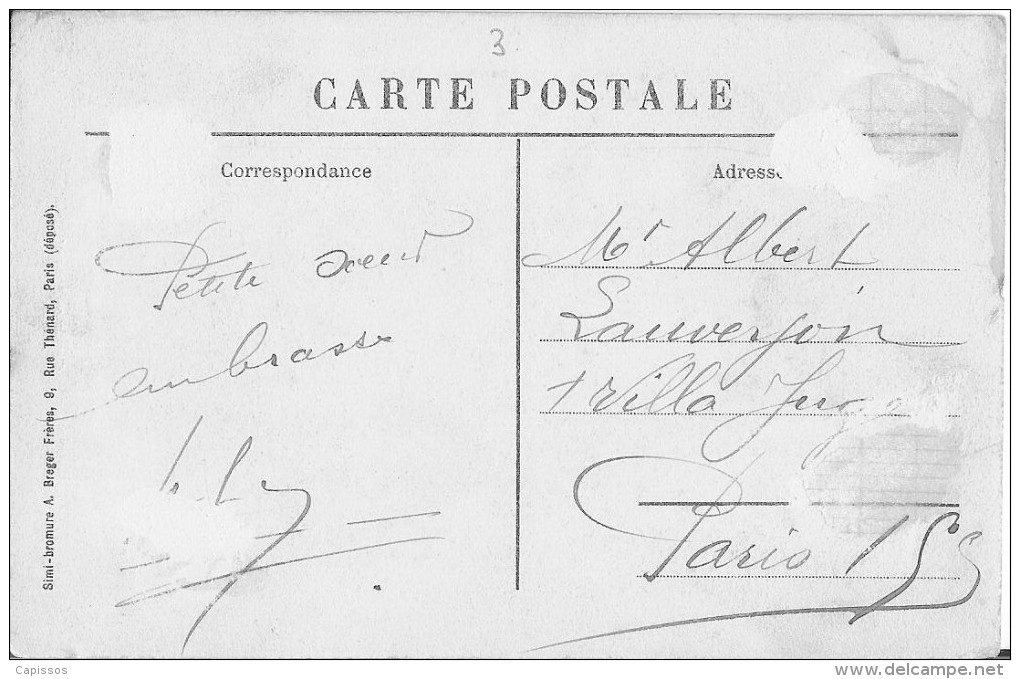 3
CARTE POSTALE
Correspondance
Adresse
Petite soeur
embrasse
Mr Albert
Lauverjon
1 Villa
Paris 15
Simi-bromure A. Breger Frères, 9, Rue Thénard, Paris (déposé).
Capissos
www.delcampe.net